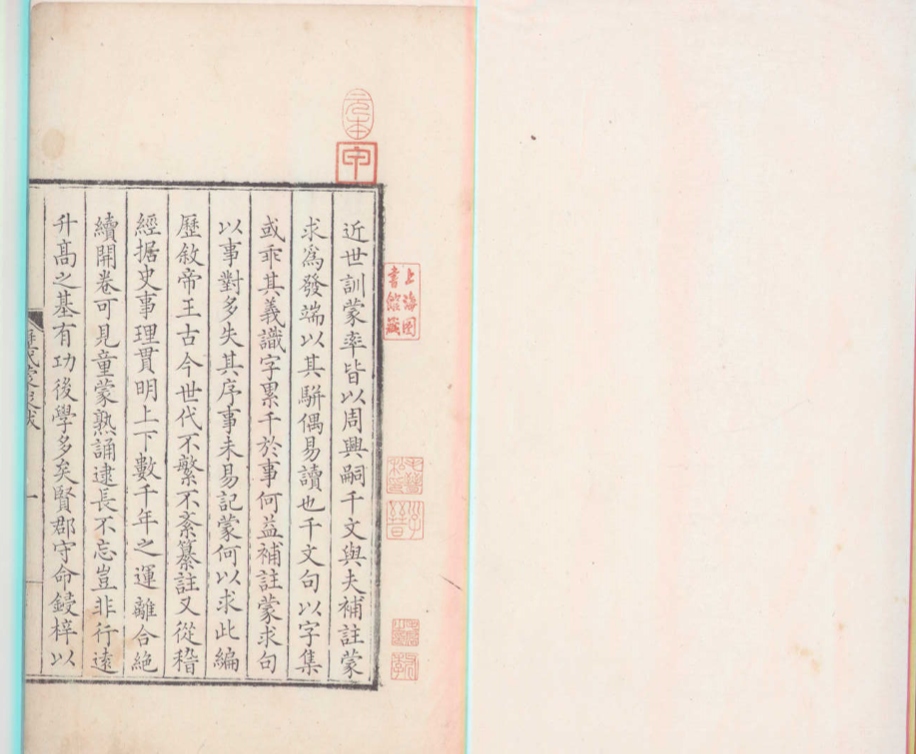 近世訓蒙率皆以周興嗣千文與夫補註蒙
求爲發端以其駢偶易讀也千文句以字集
或乖其義識字累千於事何益補註蒙求句
以事對多失其序事未易記蒙何以求此編
歷敘帝王古今世代不繁不紊纂註又從稽
經据史事理貫明上下數千年之運離合絶
續開卷可見童蒙熟誦逮長不忘豈非行遠
升髙之基有功後學多矣賢郡守命鋟梓以
元本
甲
上海圖
書館藏